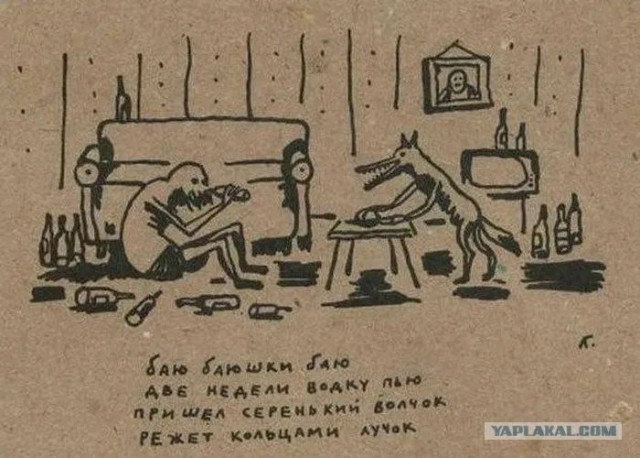 К.
баю баюшки баю
две недели водку пью
пришел серенький волчок
режет кольцами лучок
YAPLAKAL.COM